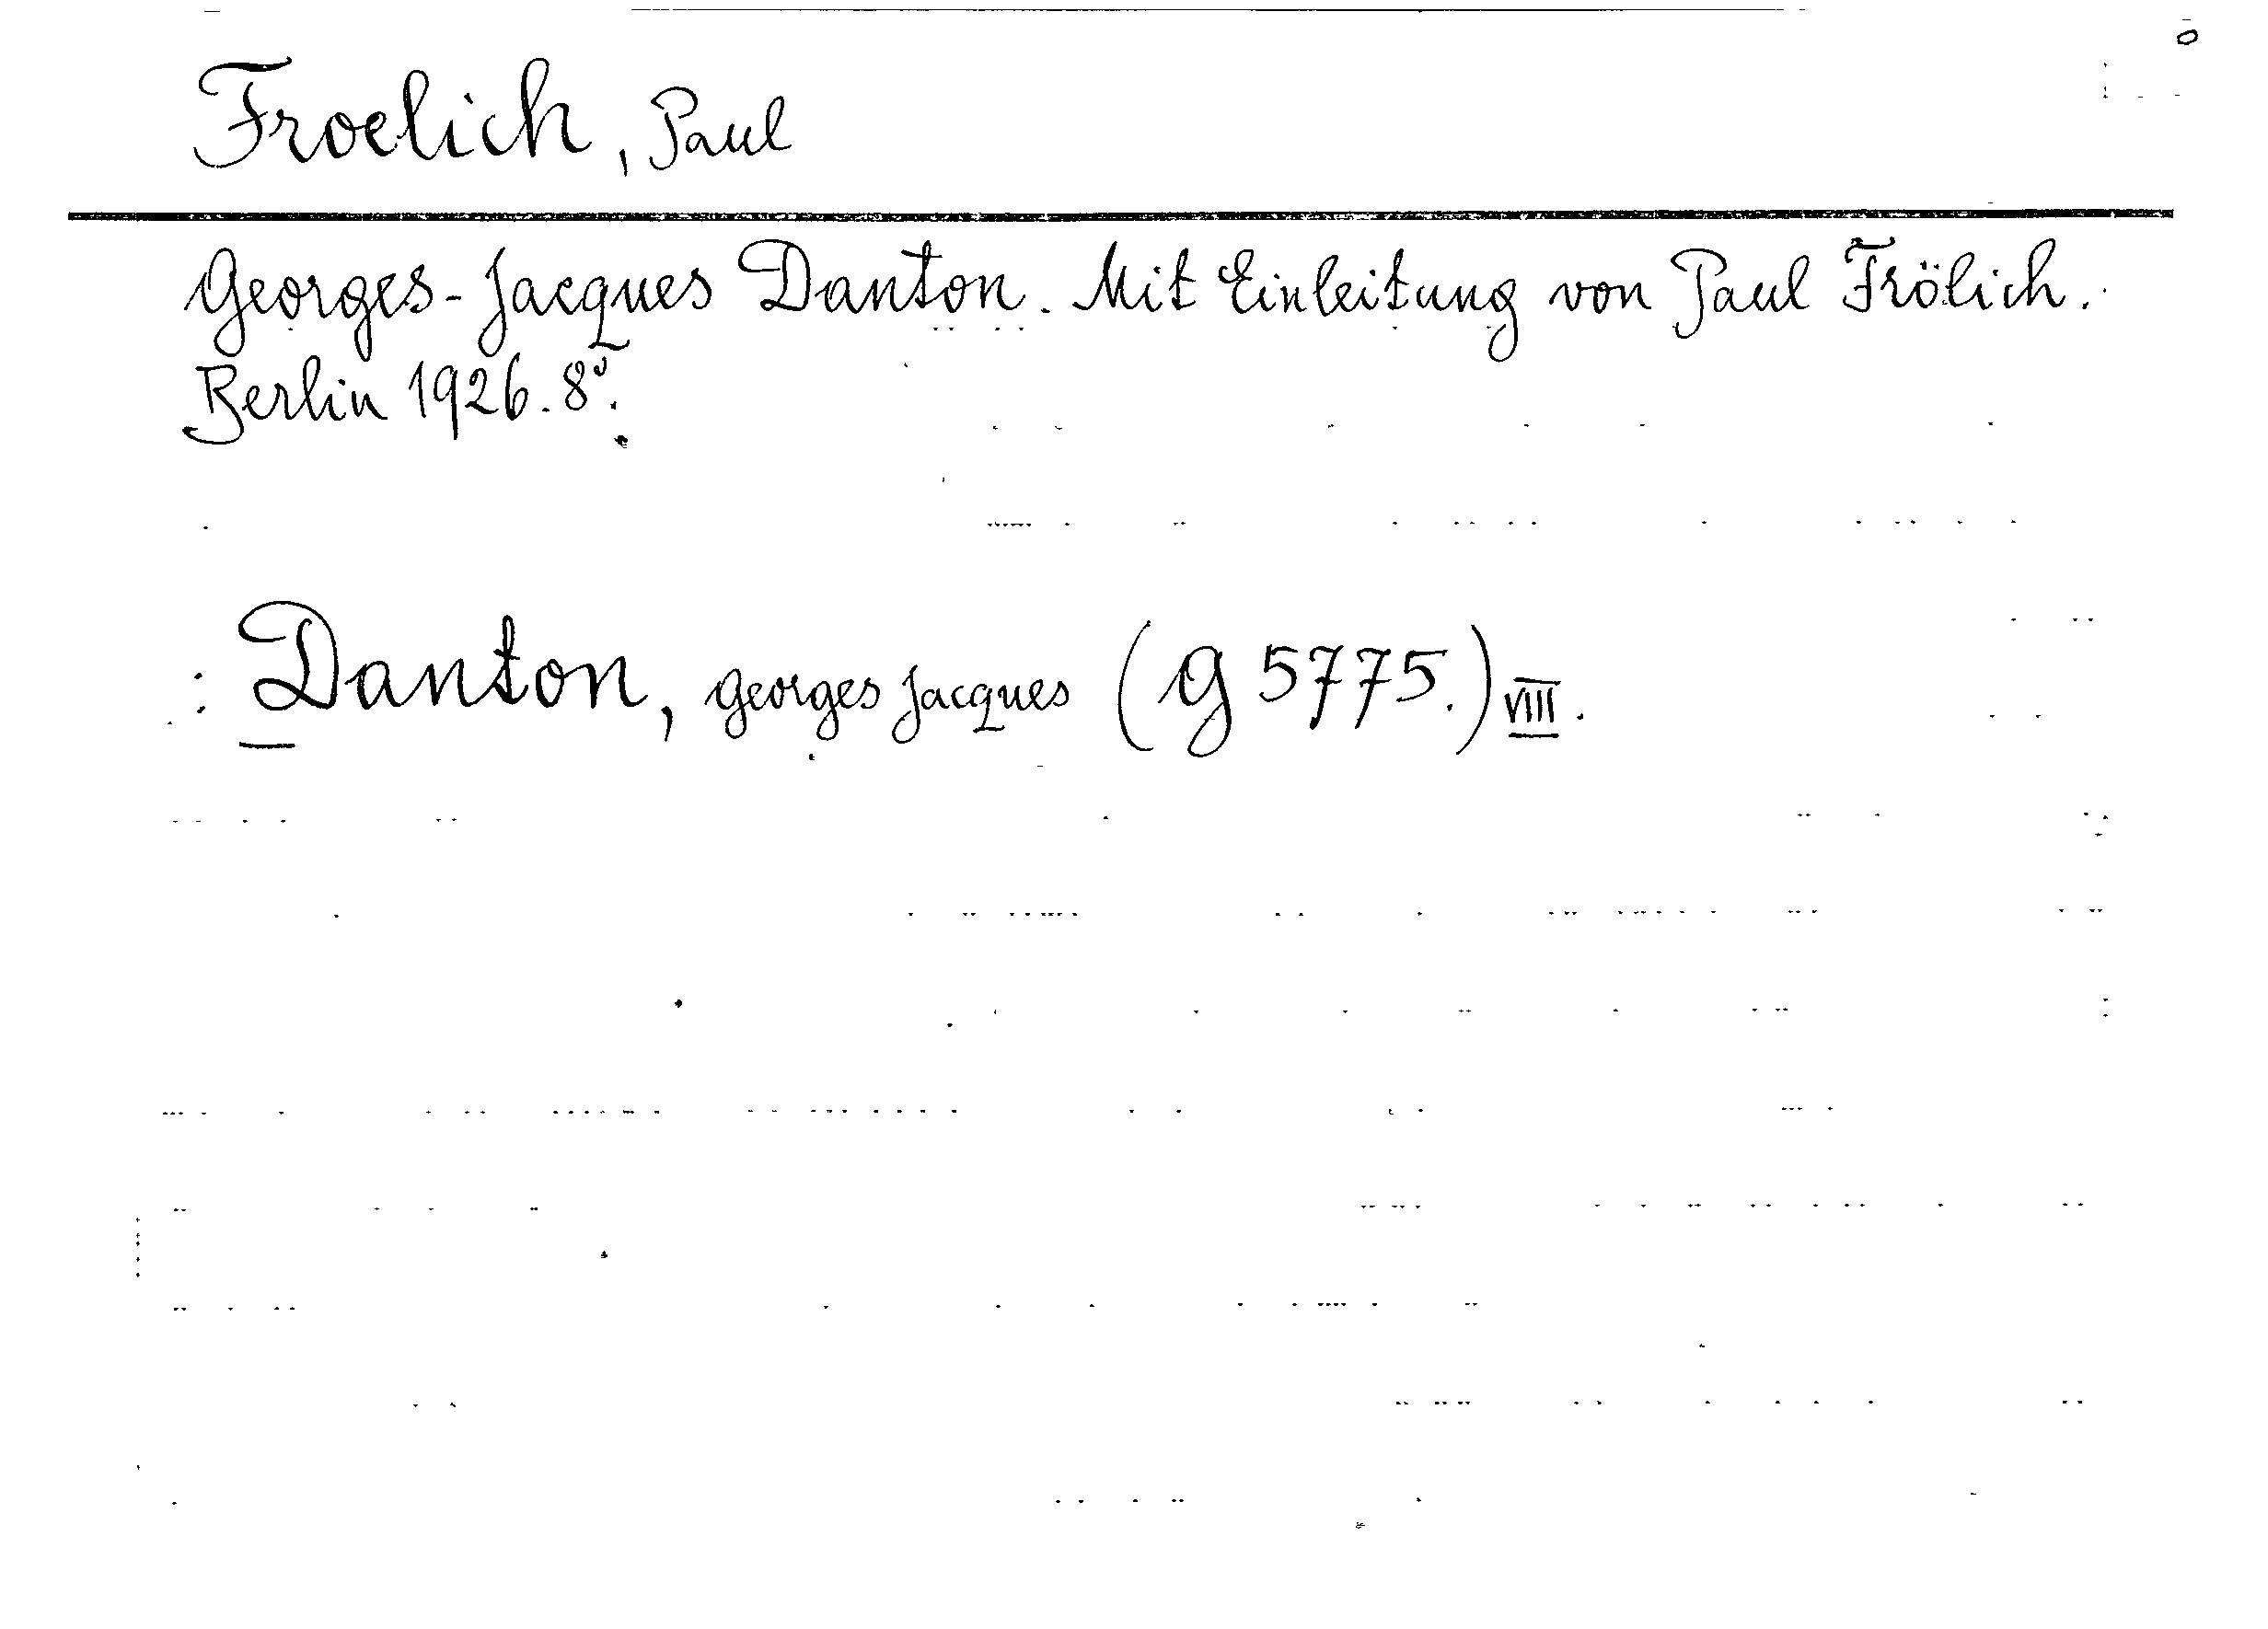 Froelich, Paul
Georges-Jacques Danton. Mit Einleitung von Paul Frölich.
Berlin 1926. 8°.
: Danton, Georges Jacques (G 5775.) VIII.